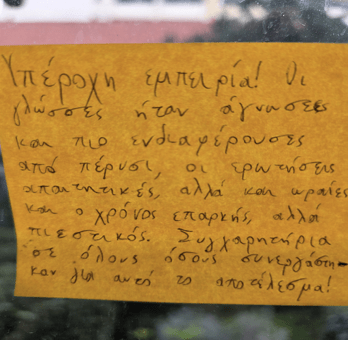 Υπέροχη εμπειρία! Οι
γλώσσες ήταν άγνωσες
και πιο ενδιαφέρουσες
από πέρυσι, οι ερωτήσεις
απαιτητικές, αλλά και ωραίες
και ο χρόνος επαρκής, αλλά
πιεστικός. Συγχαρητήρια
σε όλους όσους συνεργάστη-
καν για αυτό το αποτέλεσμα!